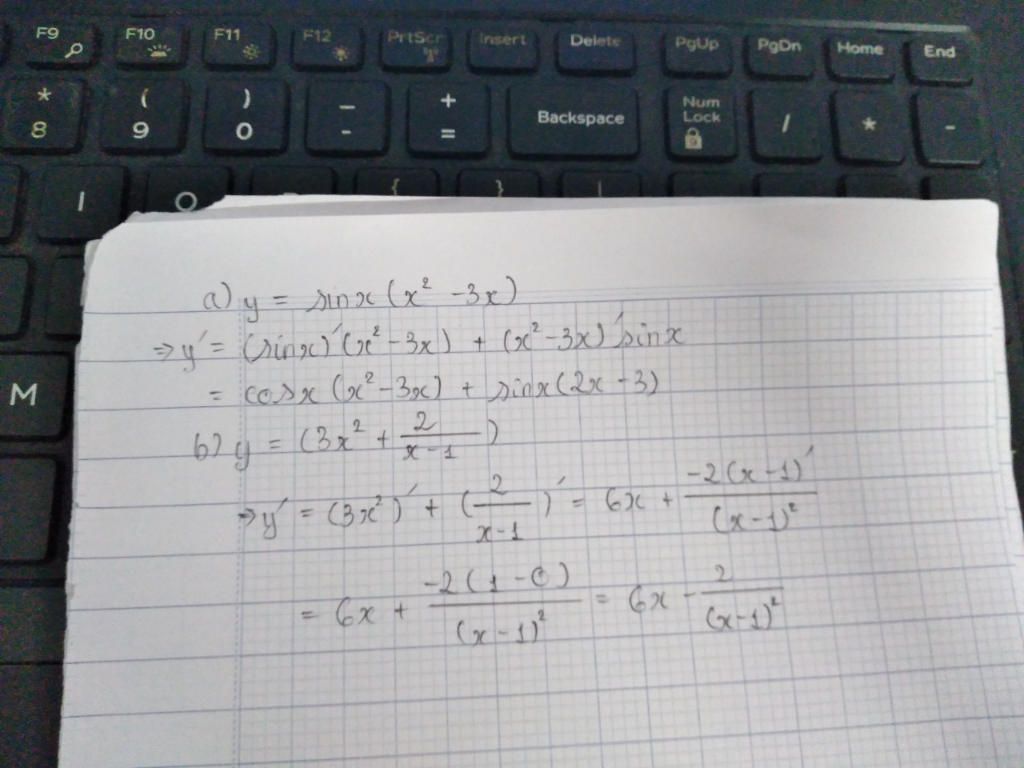 F9 F10 F11 F12 PrtScr Insert Delete PgUp PgDn Home End
* 8 ( 9 ) 0 _ - + = Backspace Num Lock / * -
I O { } |
M
a) y = sinx (x² - 3x)
⇒ y' = (sinx)' (x² - 3x) + (x² - 3x)' sinx
= cosx (x² - 3x) + sinx (2x - 3)
b) y = (3x² + 2/(x-1))
⇒ y' = (3x²)' + (2/(x-1))' = 6x + -2(x-1)'/(x-1)²
= 6x + -2(1-0)/(x-1)² = 6x - 2/(x-1)²